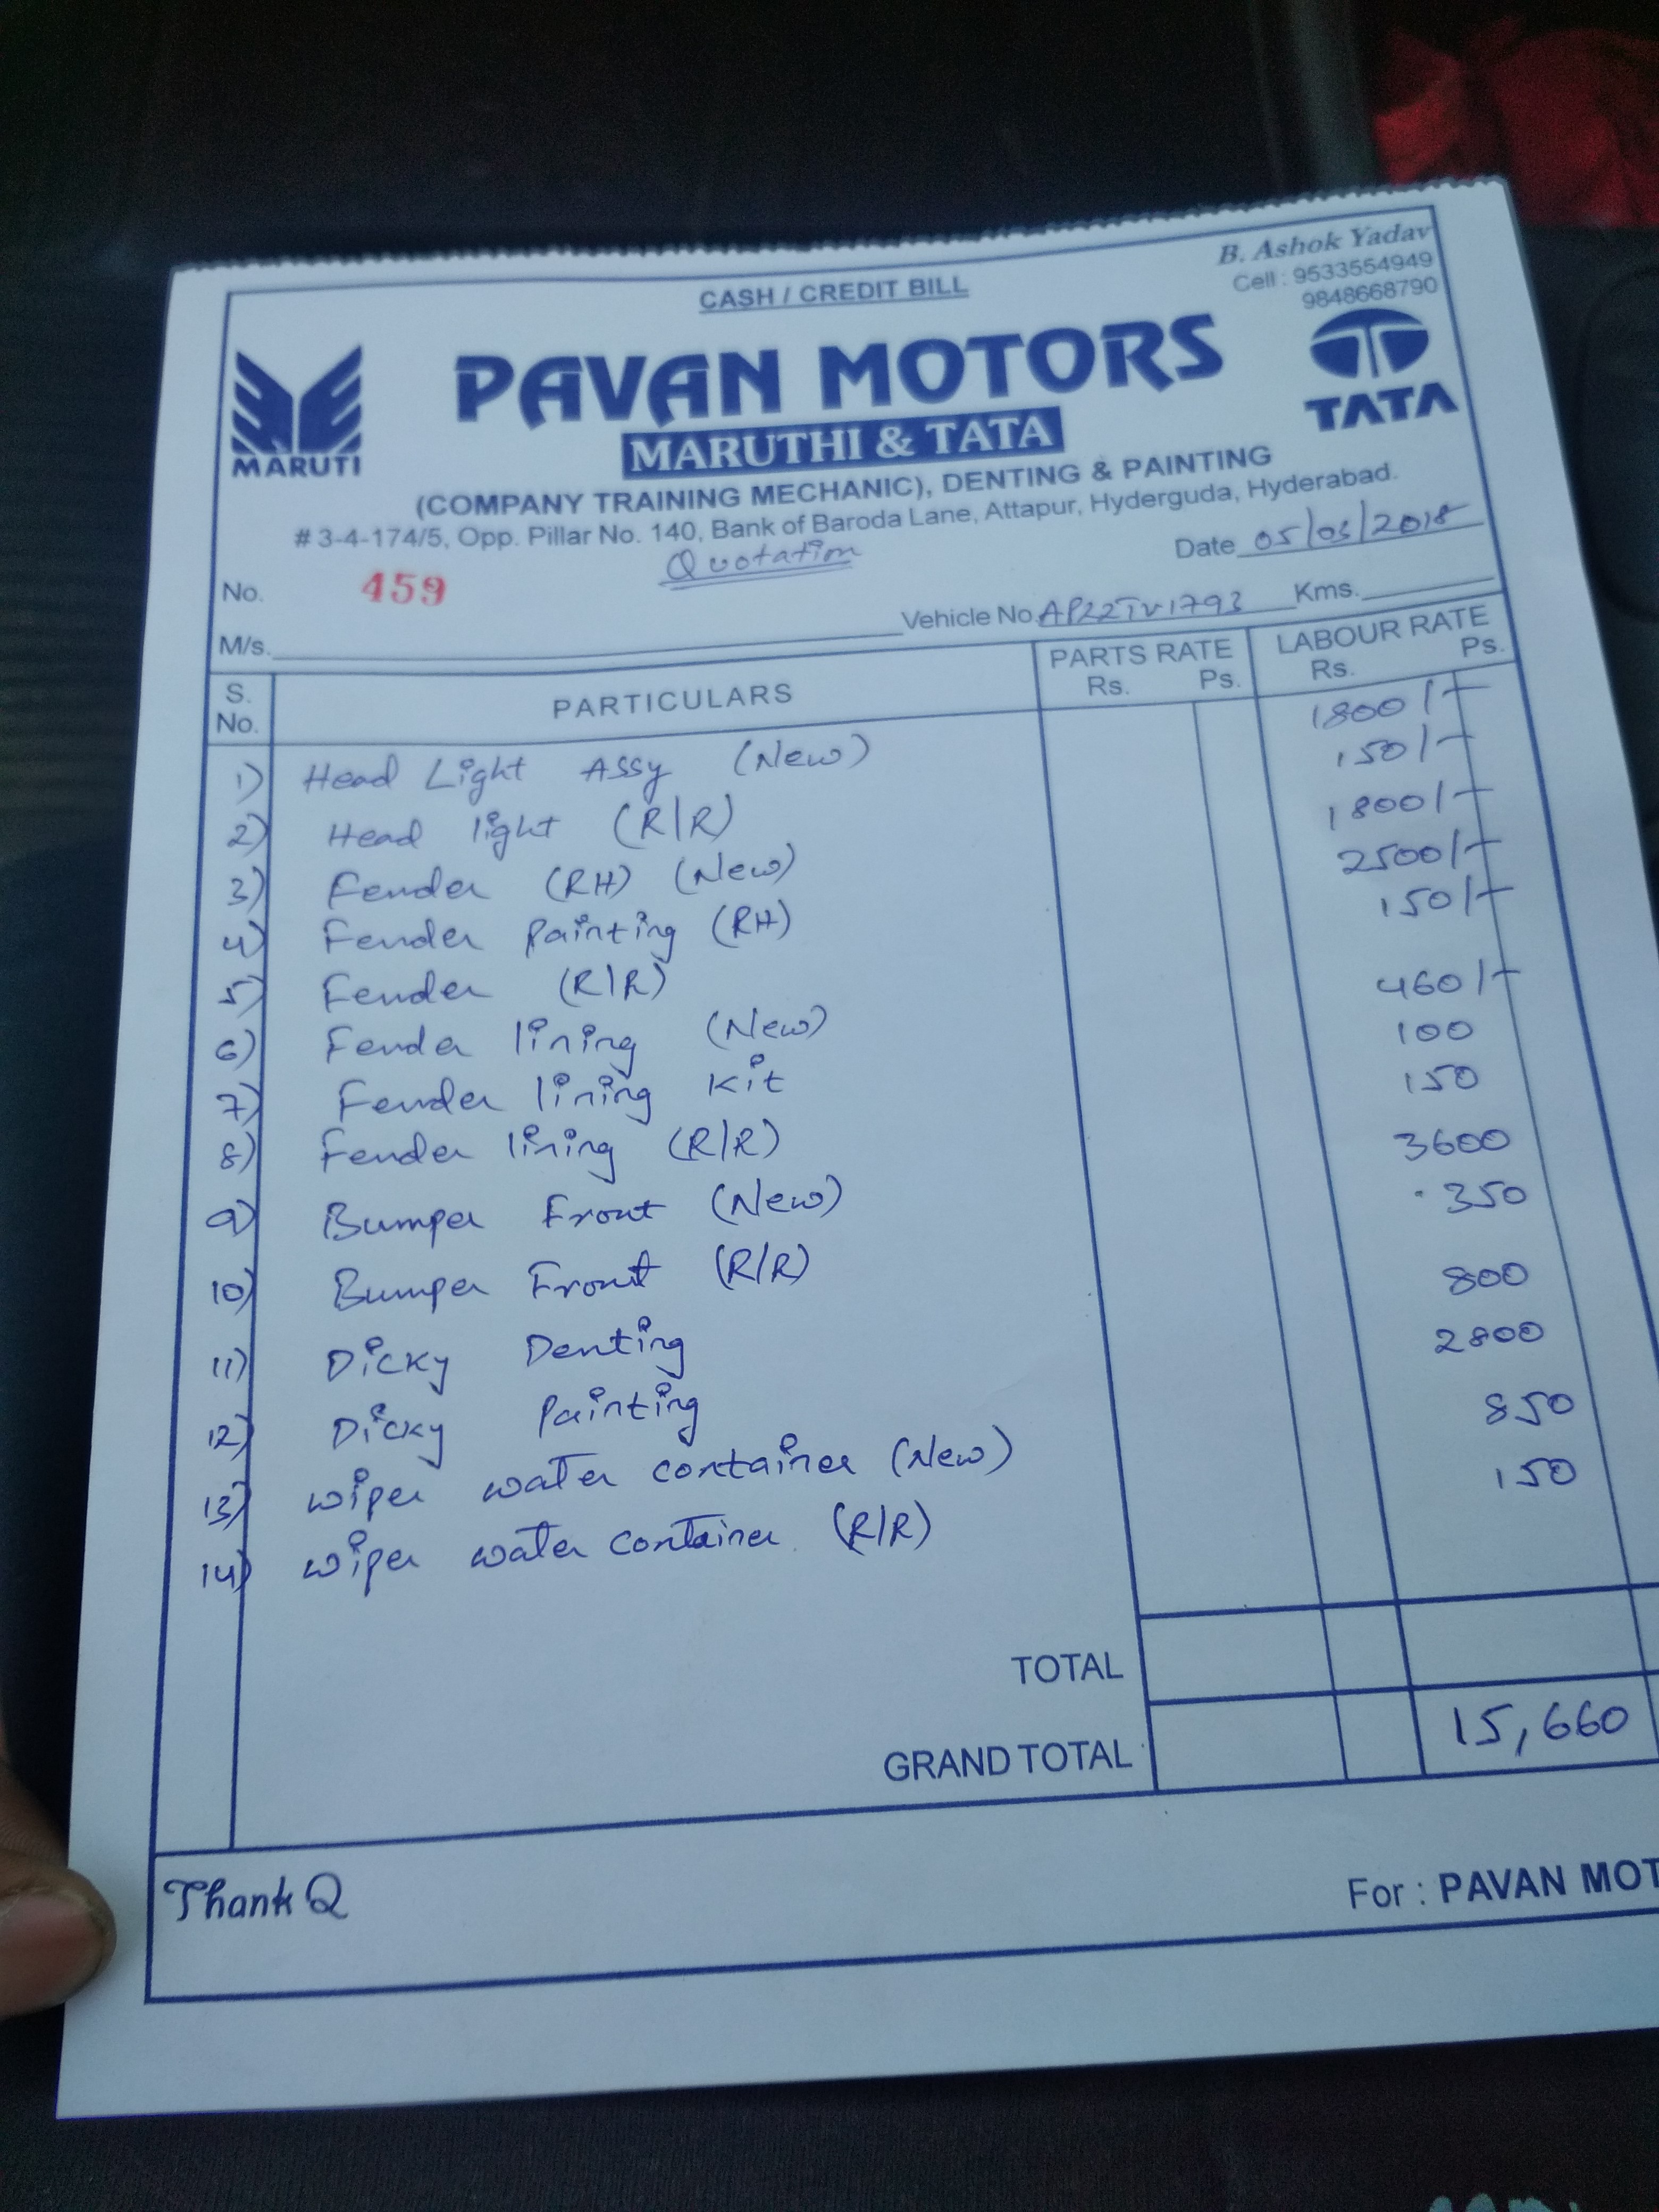 B. Ashok Yadav
CASH / CREDIT BILL
Cell : 9533554949
9848668790
PAVAN MOTORS
MARUTI
TATA
MARUTHI & TATA
(COMPANY TRAINING MECHANIC), DENTING & PAINTING
# 3-4-174/5, Opp. Pillar No. 140, Bank of Baroda Lane, Attapur, Hyderguda, Hyderabad.
Quotation
Date 05/03/2018
No. 459
Vehicle No. AP22TV1793 Kms.
M/s.
S. No. PARTICULARS PARTS RATE Rs. Ps. LABOUR RATE Rs. Ps.
1) Head Light Assy (New) 1800/-
2) Head light (R/R) 150/-
3) Fender (RH) (New) 1800/-
4) Fender Painting (RH) 2500/-
5) Fender (R/R) 150/-
6) Fender lining (New) 460/-
7) Fender lining Kit 100
8) Fender lining (R/R) 150
9) Bumper Front (New) 3600
10) Bumper Front (R/R) 350
11) Dicky Denting 800
12) Dicky Painting 2800
13) wiper water container (New) 850
14) wiper water container (R/R) 150
TOTAL
GRAND TOTAL 15,660
Thank Q
For : PAVAN MOT